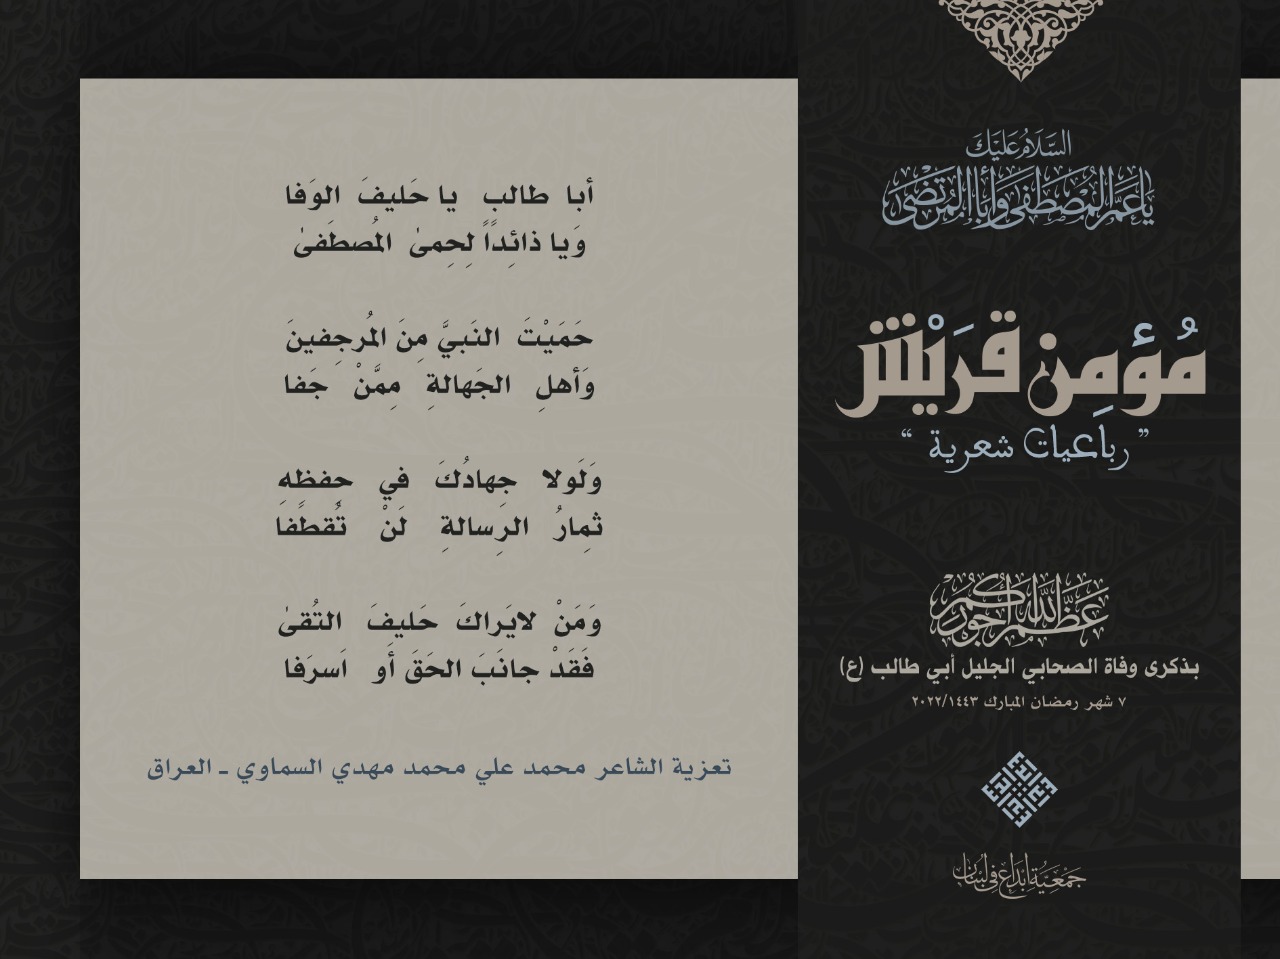 السَّلَامُ عَلَيْكَ
يَا عَمَّ الْمُصْطَفَى وَأَبَا الْمُرْتَضَى
مُؤمِن قرَيْش
” رباعيات شعرية “
عَظَّمَ اللهُ أُجُورَكُم
بذكرى وفاة الصحابي الجليل أبي طالب (ع)
٧ شهر رمضان المبارك ٢٠٢٢/١٤٤٣
جمعية إبداع في لبنان
أبا طالبٍ يا حَليفَ الوَفا
وَيا ذائِداً لِحِمىٰ المُصطَفىٰ
حَمَيْتَ النَبيَّ مِنَ المُرجِفينَ
وَأهلِ الجَهالةِ مِمَّنْ جَفا
وَلَولا جِهادُكَ في حِفظِهِ
ثِمارُ الرِسالةِ لَنْ تُقطَفا
وَمَنْ لايَراكَ حَليفَ التُقىٰ
فَقَدْ جانَبَ الحَقَ أو اَسرَفا
تعزية الشاعر محمد علي محمد مهدي السماوي ـ العراق